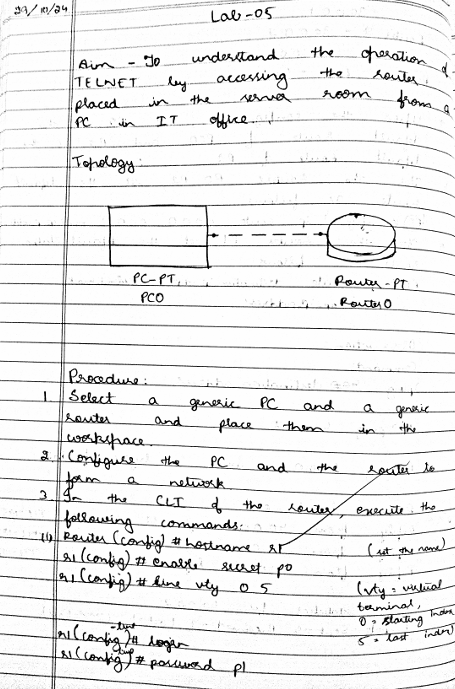 29/10/24
Lab-05
Aim - To understand the operation of
TELNET by accessing the router
placed in the server room from a
PC in IT office.
Topology:
PC-PT
Router-PT
PC0
Router0
Procedure:
1 Select a generic PC and a generic
router and place them in the
workspace.
2. Configure the PC and the router to
form a network
3 In the CLI of the router, execute the
following commands:
Router (config) # hostname r1 (set the name)
r1 (config) # enable secret p0
r1 (config) # line vty 0 5 (vty = virtual
terminal,
0 = starting index
5 = last index)
r1 (config-line) # login
r1 (config-line) # password p1